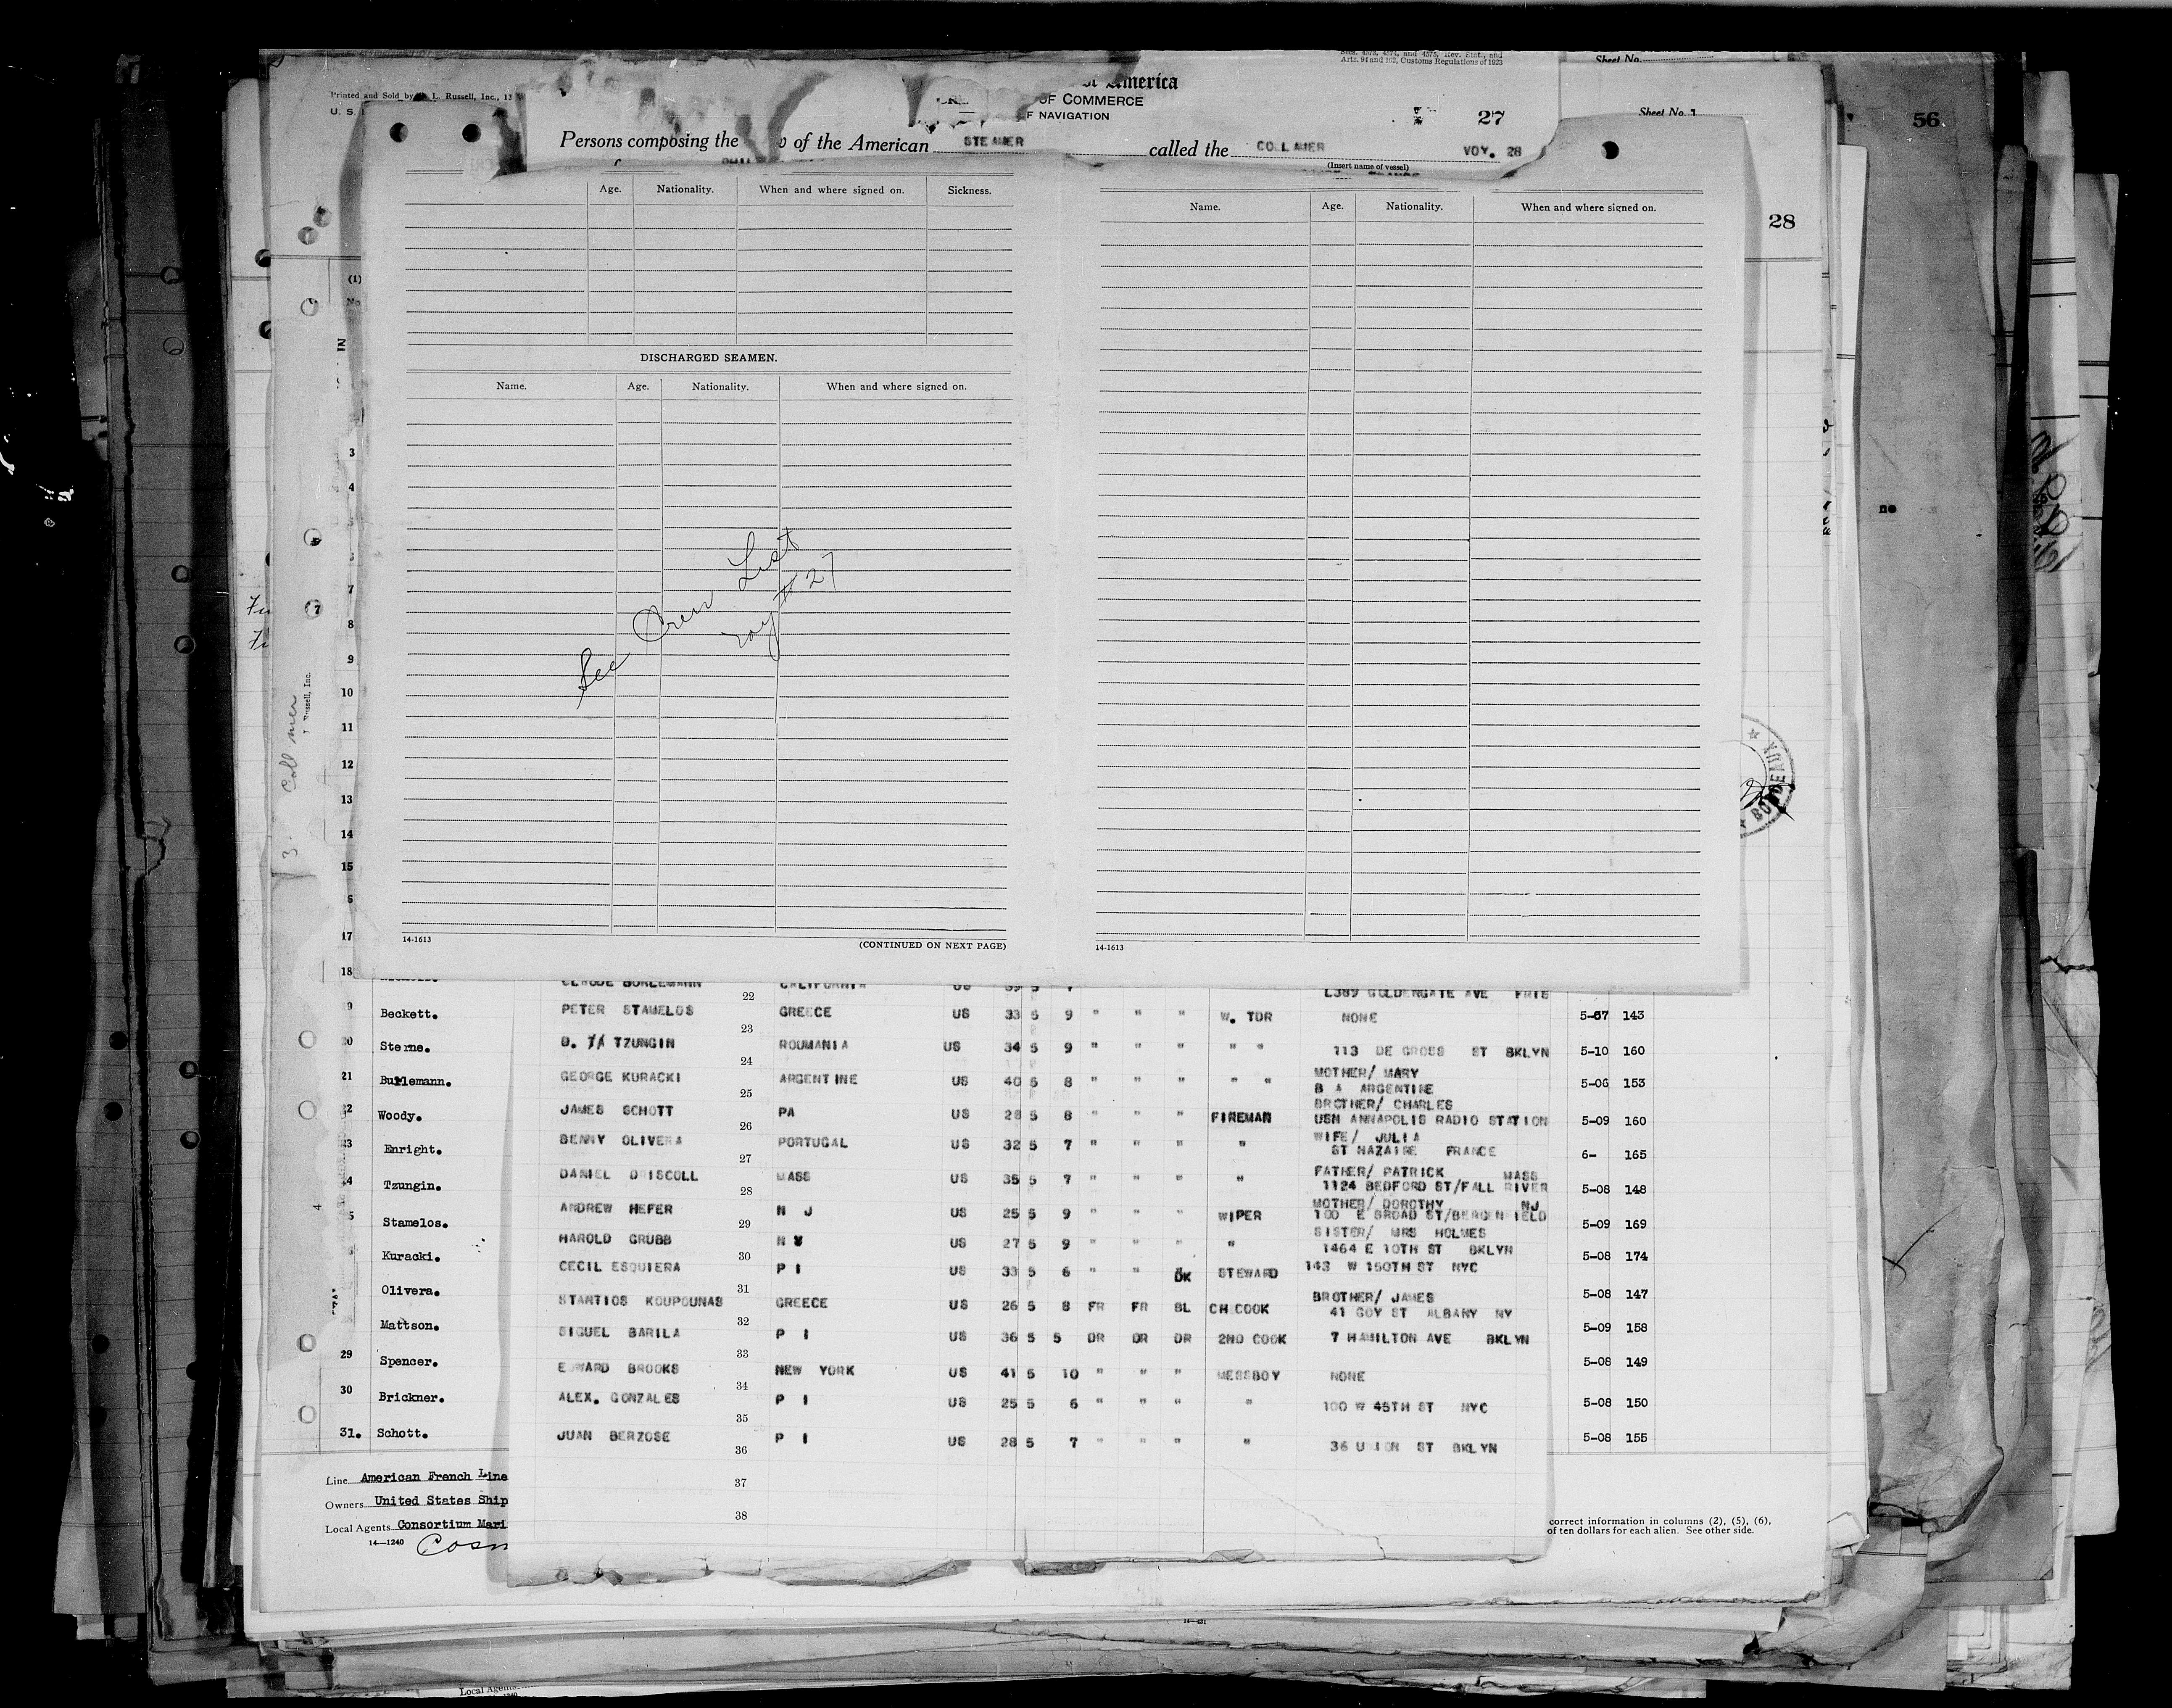 Secs. 4573, 4574, and 4575, Rev. Stat., and
Arts. 94 and 162, Customs Regulations of 1923
Sheet No.
Printed and Sold by L. Russell, Inc., 13
U. S.
America
OF COMMERCE
F NAVIGATION
27
Sheet No. 1
56
Persons composing the of the American STEAMER called the COLLAMER VOY. 28
(Insert name of vessel)
28
Age. Nationality. When and where signed on. Sickness.
Name. Age. Nationality. When and where signed on.
(1)
No
IN
DISCHARGED SEAMEN.
Name. Age. Nationality. When and where signed on.
3
4
no
See Crew List
Voy #27
7
8
9
10
11
12
13
14
15
6
17
18
Russell, Inc.
Collmer
3
BORDEAUX
14-1613
(CONTINUED ON NEXT PAGE)
14-1613
CLAUDE BURLEMANN CALIFORNIA US 39 5 7 L389 GOLDENGATE AVE FRIS
22
9 Beckett. PETER STAMELOS GREECE US 33 5 9 " " " W. TDR NONE 5-07 143
23
20 Sterne. D. TZUNGIN ROUMANIA US 34 5 9 " " " " " 113 DE GROSS ST BKLYN 5-10 160
24
21 Burlemann. GEORGE KURACKI ARGENTINE US 40 5 8 " " " " " MOTHER/ MARY
B A ARGENTINE 5-06 153
25
22 Woody. JAMES SCHOTT PA US 28 5 8 " " " FIREMAN BROTHER/ CHARLES
USN ANNAPOLIS RADIO STATION 5-09 160
26
23 Enright. BENNY OLIVERA PORTUGAL US 32 5 7 " " " " WIFE/ JULIA
ST NAZAIRE FRANCE 6- 165
27
24 Tzungin. DANIEL DRISCOLL MASS US 35 5 7 " " " " FATHER/ PATRICK MASS
1124 BEDFORD ST/FALL RIVER 5-08 148
28
5 Stamelos. ANDREW HEFER N J US 25 5 9 " " " WIPER MOTHER/ DOROTHY NJ
100 E BROAD ST/BERGENFIELD 5-09 169
29
6 Kuracki. HAROLD GRUBB N Y US 27 5 9 " " " " SISTER/ MRS HOLMES
1464 E 10TH ST BKLYN 5-08 174
30
Olivera. CECIL ESQUIERA P I US 33 5 6 " " DK STEWARD 143 W 150TH ST NYC 5-08 147
31
Mattson. STANTIOS KOUPOUNAS GREECE US 26 5 8 FR FR BL CH COOK BROTHER/ JAMES
41 GOY ST ALBANY NY 5-09 158
32
29 Spencer. SIGUEL BARILA P I US 36 5 5 DR DR DR 2ND COOK 7 HAMILTON AVE BKLYN 5-08 149
33
EDWARD BROOKS NEW YORK US 41 5 10 " " " MESSBOY NONE
34
30 Brickner. ALEX. GONZALES P I US 25 5 6 " " " " 100 W 45TH ST NYC 5-08 150
35
31. Schott. JUAN BERZOSE P I US 28 5 7 " " " " 36 UNION ST BKLYN 5-08 155
36
37
38
Line American French Line
Owners United States Ship
Local Agents Consortium Mari
14—1240
correct information in columns (2), (5), (6),
of ten dollars for each alien. See other side.
Local Agents